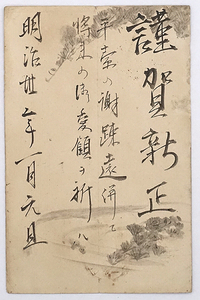 謹賀新正
平素の謝疎遠併て
将来の御愛顧を祈ル
明治卅二年一月元旦